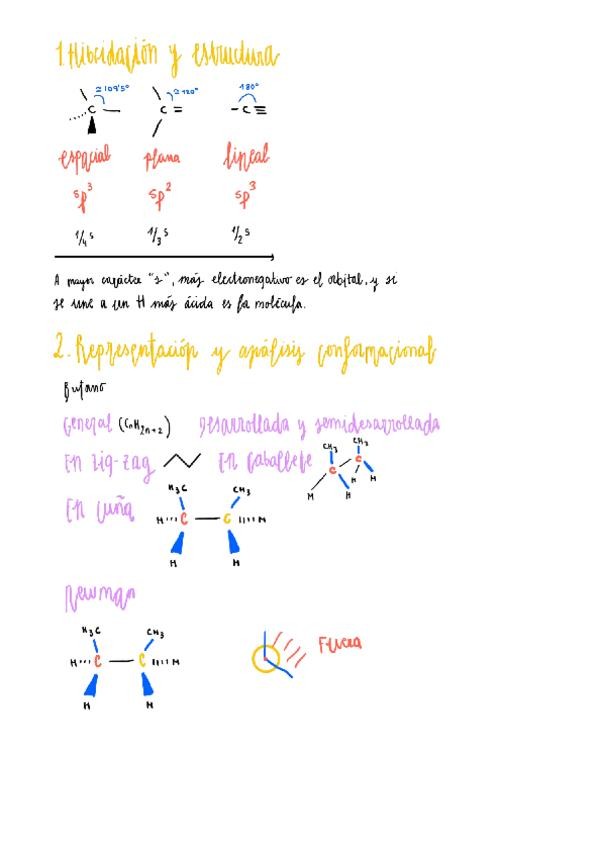 1. Hibridación y estructura
≃109'5° ≃120° 180°
C C= -C≡
espacial plana lineal
sp³ sp² sp³
1/4 s 1/3 s 1/2 s
A mayor carácter "s", más electronegativo es el orbital, y si
se une a un H más ácida es la molécula.
2. Representación y análisis conformacional
Butano
General (CnH2n+2) Desarrollada y semidesarrollada
En zig-zag En caballete CH3 CH3
C C
H H H H
En cuña H3C CH3
H C C H
H H
Newman
H3C CH3
H C C H
Fuera
H H